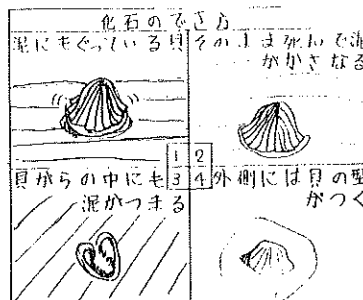 化石のでき方
泥にもぐっている貝
そのまま死んで泥
がかさなる
1 2
3 4
貝がらの中にも
泥がつまる
外側には貝の型
がつく